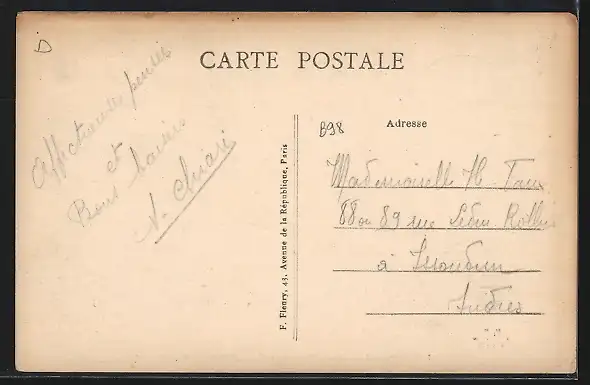 D
CARTE POSTALE
Affectueuse pensée
et
Bons baisers
N. Chiari
F. Fleury, 43, Avenue de la République, Paris
898
Adresse
Mademoiselle H.
88 ou 89 rue Ledru Rollin
à Issoudun
Indres